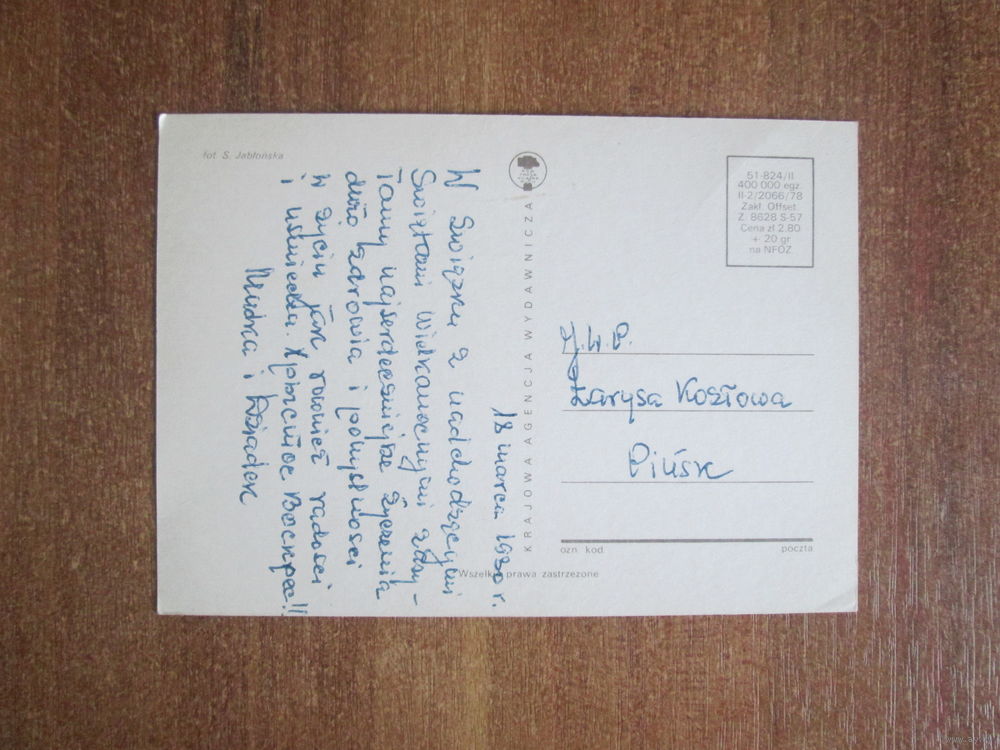 fot S. Jabłońska
18 marca 1980 r.
W Związku z nadchodzącymi
Świętami Wielkanocnymi zasy-
łamy najserdeczniejsze życzenia
dużo zdrowia i pomyślności
w życiu jak również radości
i uśmiechu. Хрыстос Воскрес!!
i Dziadek
KRAJOWA AGENCJA WYDAWNICZA
Wszelkie prawa zastrzeżone
51-824/II
400 000 egz.
II-2/2066/78
Zakł. Offset.
Z. 8628 S-57
Cena zł 2,80
+ 20 gr
na NFOZ
J.W.P.
Łarysa Kozłowa
Pińsk
ozn. kod. poczta